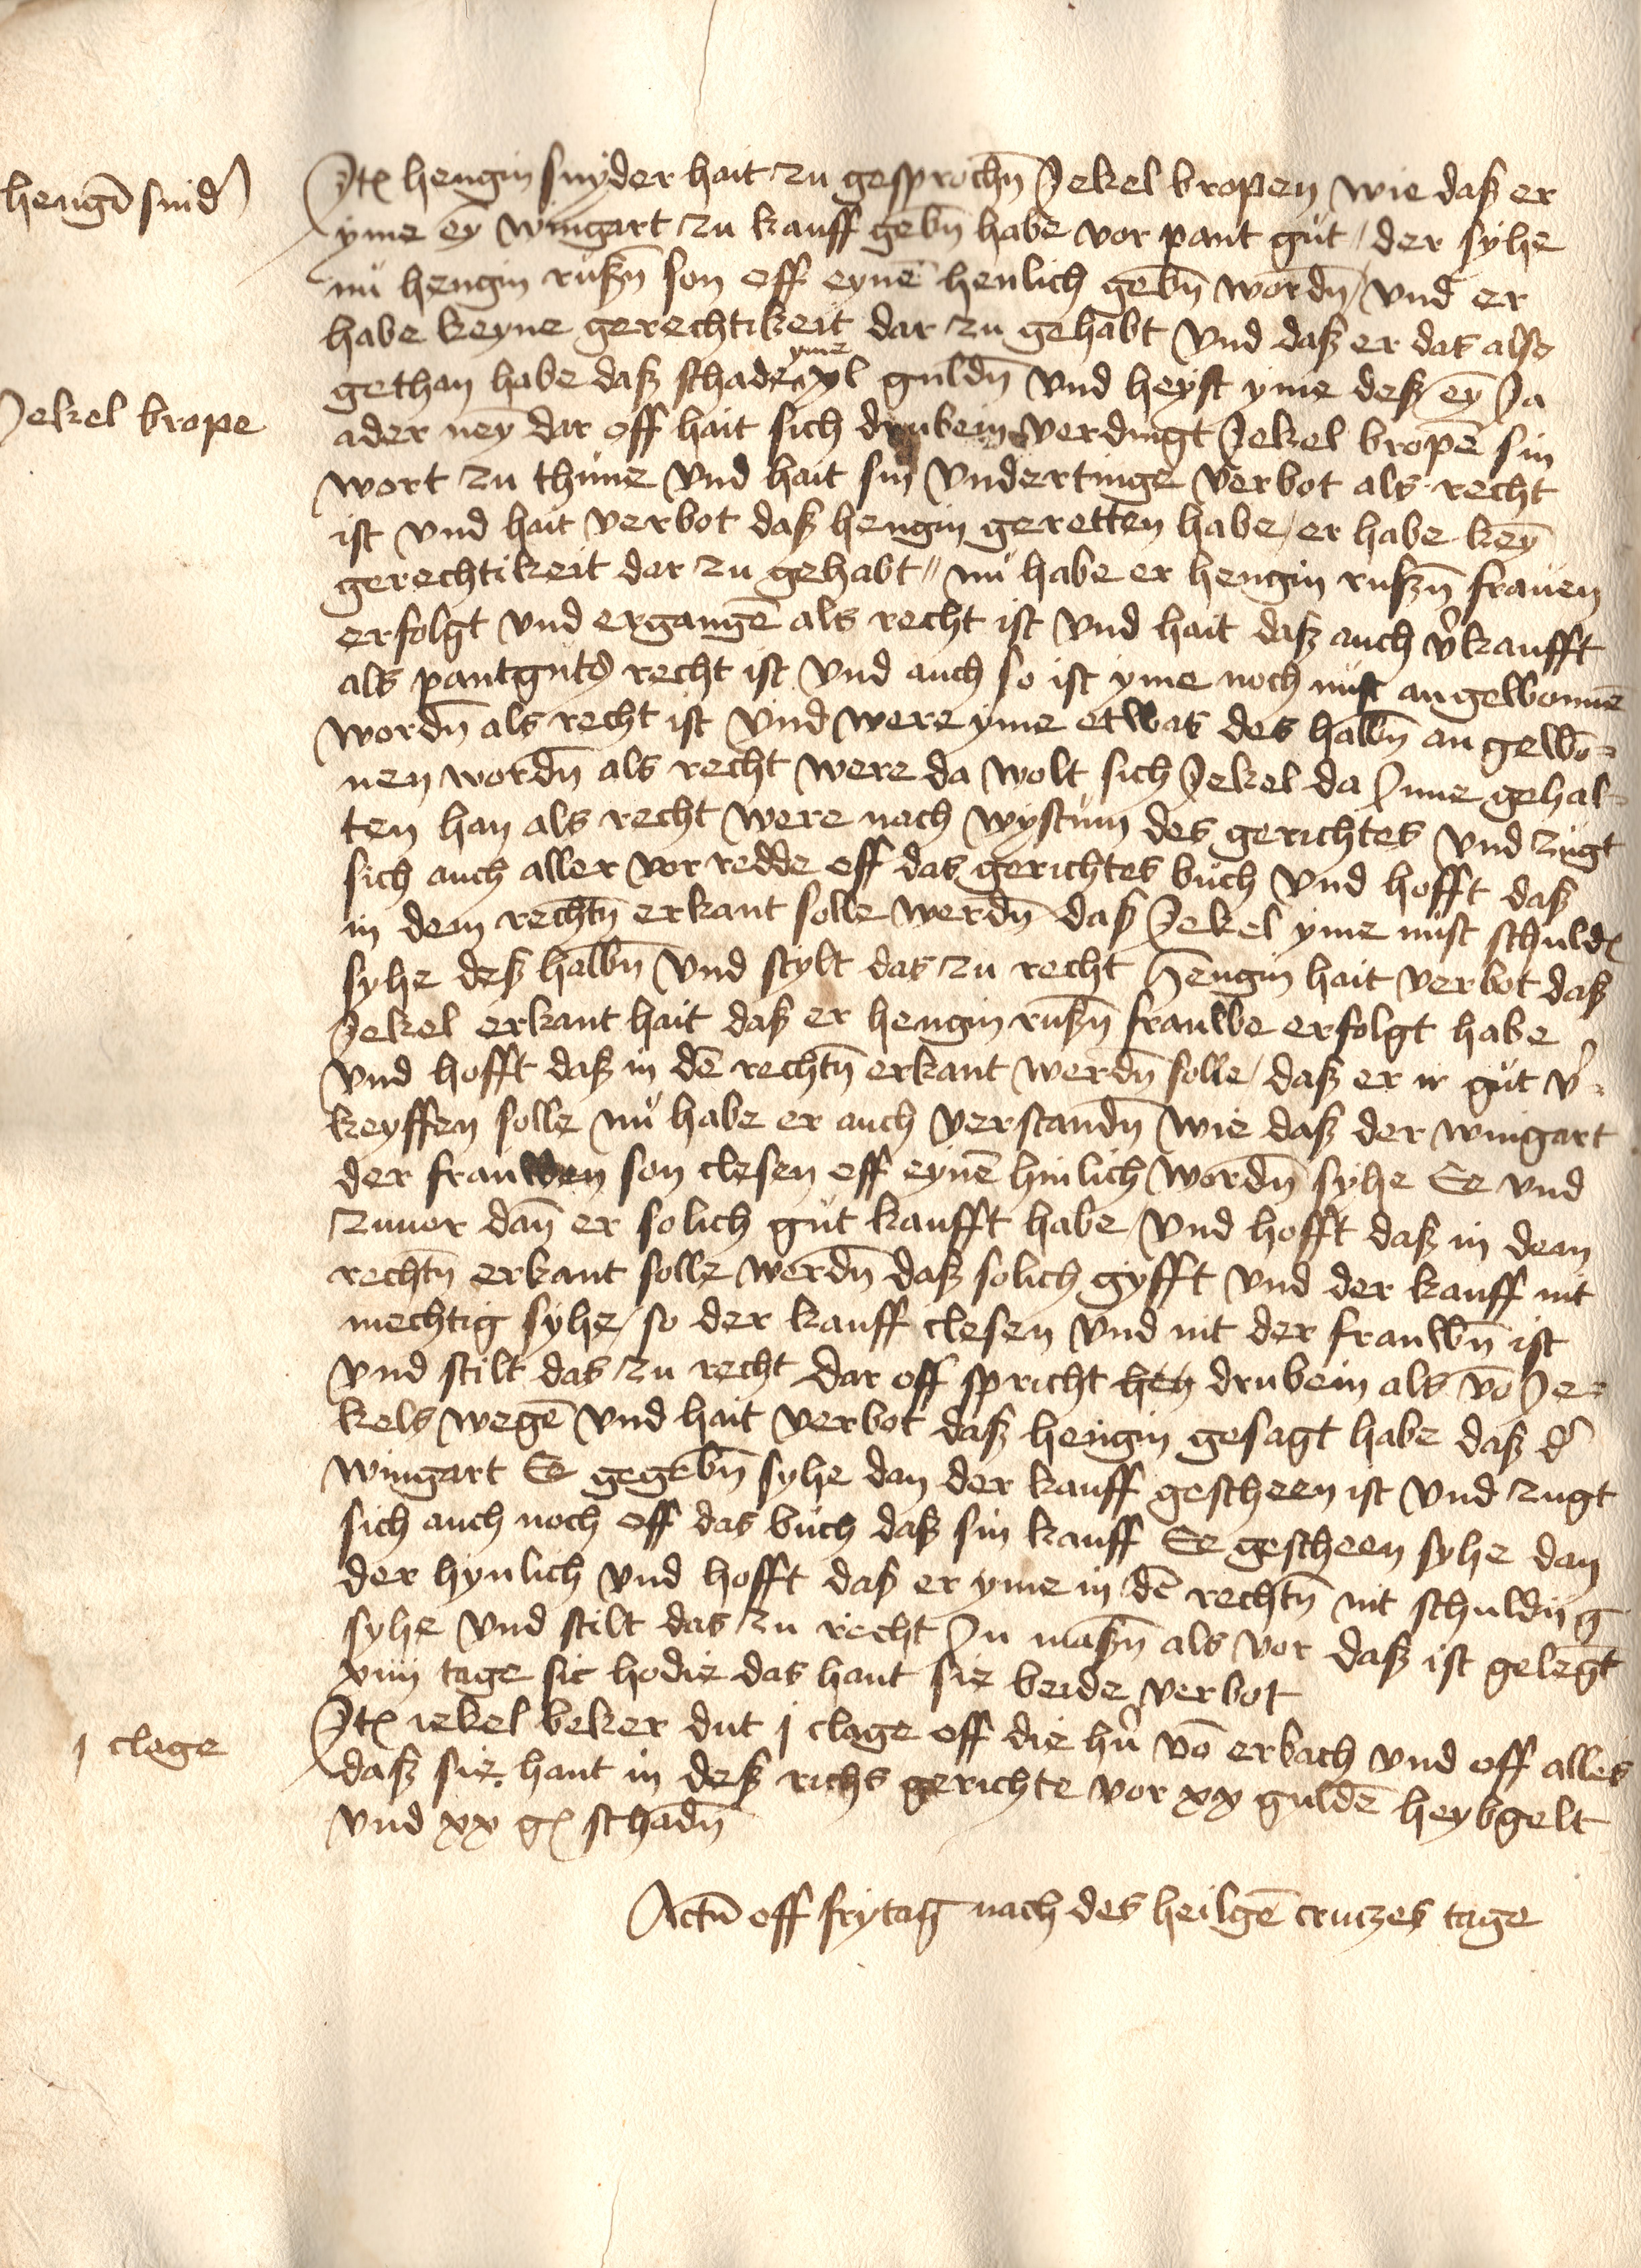 hengī snid͛
Itꝫ hengin snyder hait zu gesprochn̄ Jekel bropen wie daß er
yme eȳ wingart zu kauff gebn̄ habe vor pant gut / der syhe
nů hengin rußn̄ son off eynē henlich gebn̄ wordn̄ / vnd er
habe keyne gerechtikeit dar zu gehabt vnd daß er das also
gethan habe daß schade yme xl guldn̄ vnd heyst yme deß eȳ Ja
Jekel brope
ader neȳ dar off hait sich drubein verdingt Jekel bropē sin
wort zu thune vnd hait sin vndertinge verbot als recht
ist vnd hait verbot daß hengin geretten habe / er habe keȳ
gerechtikeit dar zu gehabt // nů habe er hengin rußn̄ frauen
erfolgt vnd ergangē als recht ist vnd hait daß auch v͛kaufft
als pantgutꝭ recht ist vnd auch so ist yme noch nust angewonnē
wordn̄ als recht ist vnd were yme etwas des halbn̄ an gewō-
nen wordn̄ als recht were da wolt sich Jekel da Inne gehal-
ten han als recht were nach wystum des gerichtes vnd zugt
sich auch aller vor redde off das gerichtes buch vnd hofft daß
in dem rechtn̄ erkant solle werdn̄ daß Jekel yme nust schuldꝭ
syhe deß halbn̄ vnd stylt das zu recht Hengin hait verbot daß
Jekel erkant hait daß er hengin rußn̄ frauwe erfolgt habe
vnd hofft daß in dē rechtn̄ erkant werdn̄ solle / daß er ir gut v͛-
keyffen solle nů habe er auch verstandn̄ wie daß der wingart
der frauwen son clesen off eynē hinlich wordn̄ syhe Ee vnd
zuuor dan̄ er solich gut kaufft habe / vnd hofft daß in dem
rechtn̄ erkant solle werdn̄ daß solich gyfft vnd der kauff nit
mechtig syhe / so der kauff clesen vnd nit der frauwn̄ ist
vnd stilt das zu recht dar off spricht hen drubein als vō Je-
kels wegē vnd hait verbot daß hengin gesagt habe daß d͛
wingart Ee gegebn̄ syhe dan der kauff gescheen ist vnd zugt
sich auch noch off das buch daß sin kauff Ee gescheen syhe dan
der hynlich vnd hofft daß er yme in dē rechtn̄ nit schuldig
syhe vnd stilt das zu recht In maßn̄ als vor daß ist gelegt
xiiij tage sic hodie das hant sie beide verbot
j clage
Itꝫ iekel beker dut j clage off die hn͛ vō erbach vnd off alles
daß sie hant in deß richs gerichte vor xx guldē heybgelt
vnd xx gꝭ schadn̄
Actū off frytag nach des heilgē cruczes tage